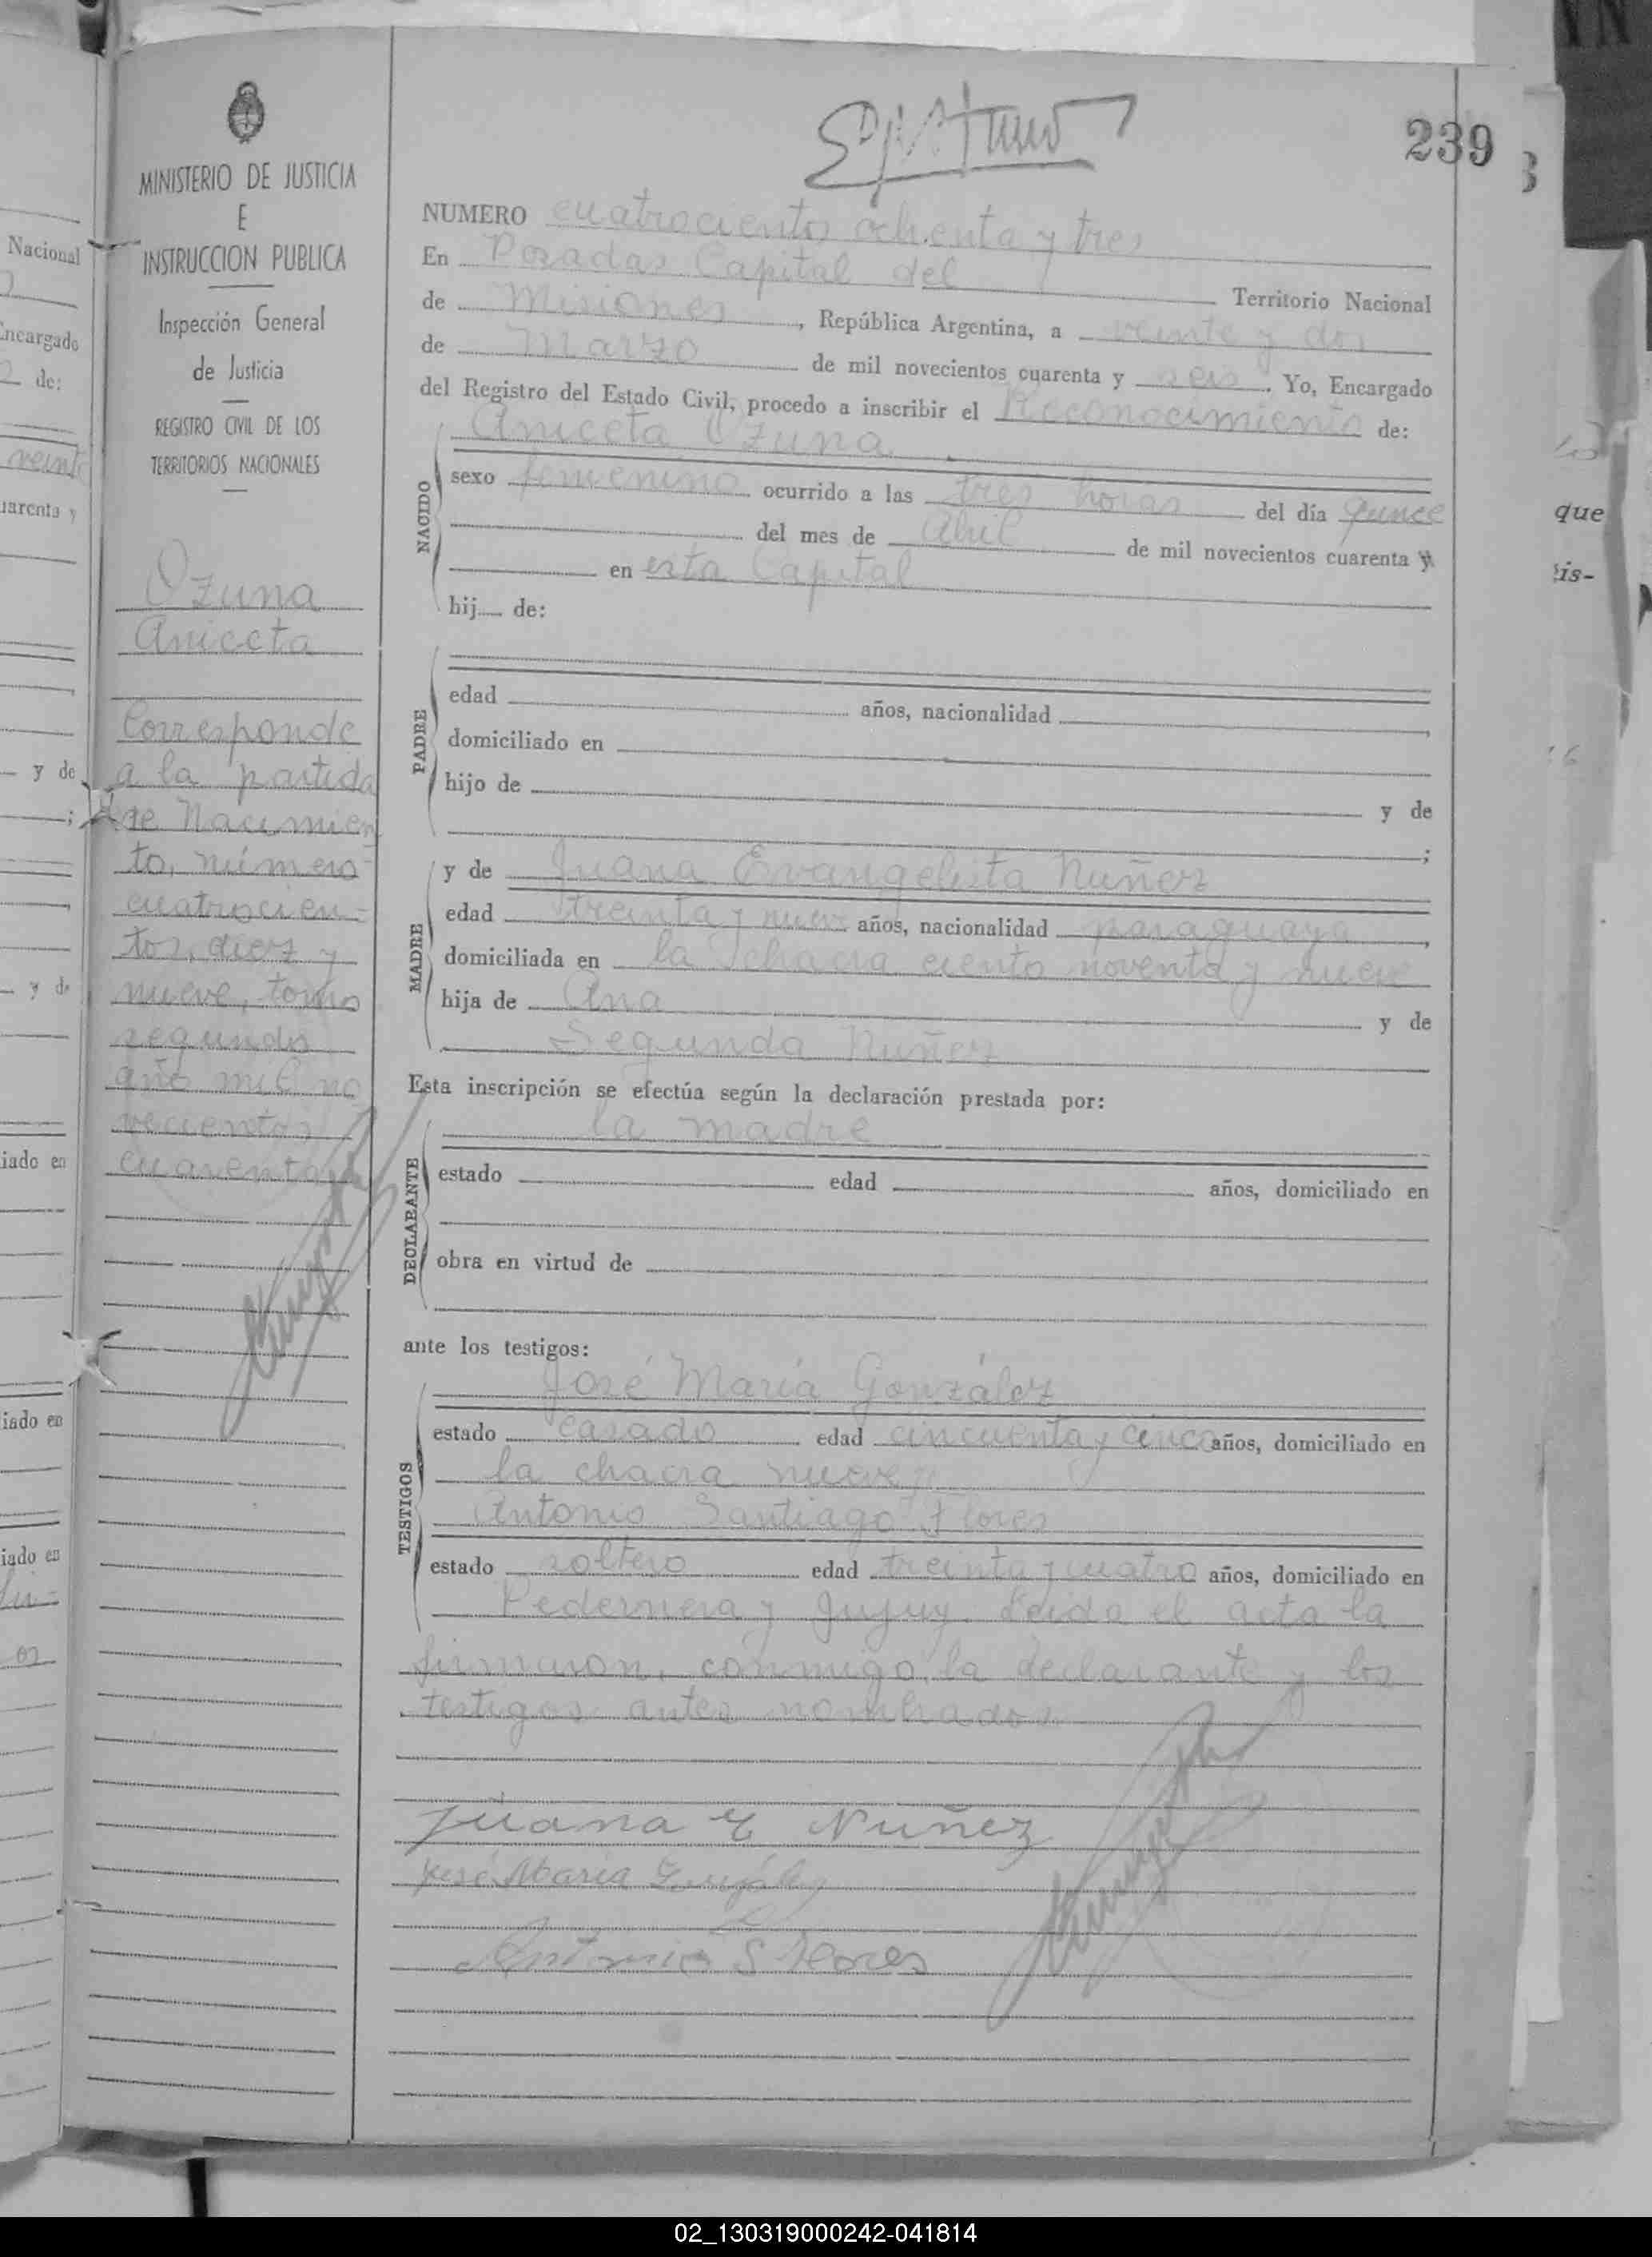 239
MINISTERIO DE JUSTICIA
E
INSTRUCCION PUBLICA
Inspección General
de Justicia
REGISTRO CIVIL DE LOS
TERRITORIOS NACIONALES
Ozuna
Aniceta
Corresponde
a la partida
de Nacimien
to, número
cuatrocien-
tos, diez y
nueve, tomo
segundo
año mil no
vecientos
cuarenta
NUMERO cuatrocientos ochenta y tres
En Posadas Capital del Territorio Nacional
de Misiones, República Argentina, a veinte y dos
de Marzo de mil novecientos cuarenta y seis. Yo, Encargado
del Registro del Estado Civil, procedo a inscribir el Reconocimiento de:
Aniceta Ozuna
NACIDO
sexo femenino ocurrido a las tres horas del día quince
del mes de Abril de mil novecientos cuarenta y
en esta Capital
hij de:
PADRE
edad años, nacionalidad
domiciliado en
hijo de y de
;
MADRE
y de Juana Evangelista Nuñez
edad treinta y nueve años, nacionalidad paraguaya,
domiciliada en la chacra ciento noventa y nueve
hija de Ana y de
Segunda Nuñez
Esta inscripción se efectúa según la declaración prestada por:
la madre
DECLARANTE
estado edad años, domiciliado en
obra en virtud de
ante los testigos:
José María González
TESTIGOS
estado casado edad cincuenta y cinco años, domiciliado en
la chacra nueve,
Antonio Santiago Flores
estado soltero edad treinta y cuatro años, domiciliado en
Pedernera y Jujuy. Leida el acta la
firmaron, conmigo, la declarante y los
testigos antes nombrados
Juana E Nuñez
José Maria González
Antonio S Flores
Nacional
Encargado
de:
veinte
uarenta y
y de
;
y de
iado en
iado en
iado en
que
is-
02_130319000242-041814